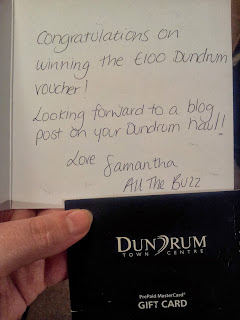 Congratulations on
winning the €100 Dundrum
voucher!
Looking forward to a blog
post on your Dundrum haul!!
Love Samantha
All The Buzz
DUNDRUM
TOWN CENTRE
PrePaid MasterCard®
GIFT CARD